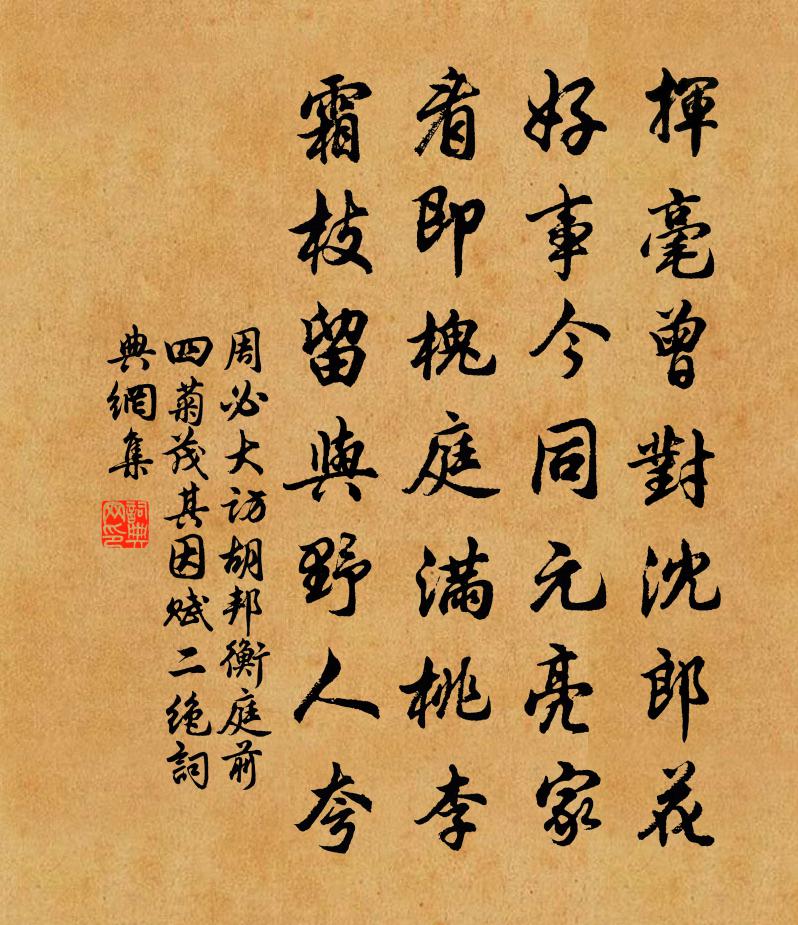 揮毫曾對沈郎花
好事今同元亮家
看即槐庭滿桃李
霜枝留與野人夸
周必大訪胡邦衡庭前
四菊茂其因賦二絕詞
典網集
詞典
网印